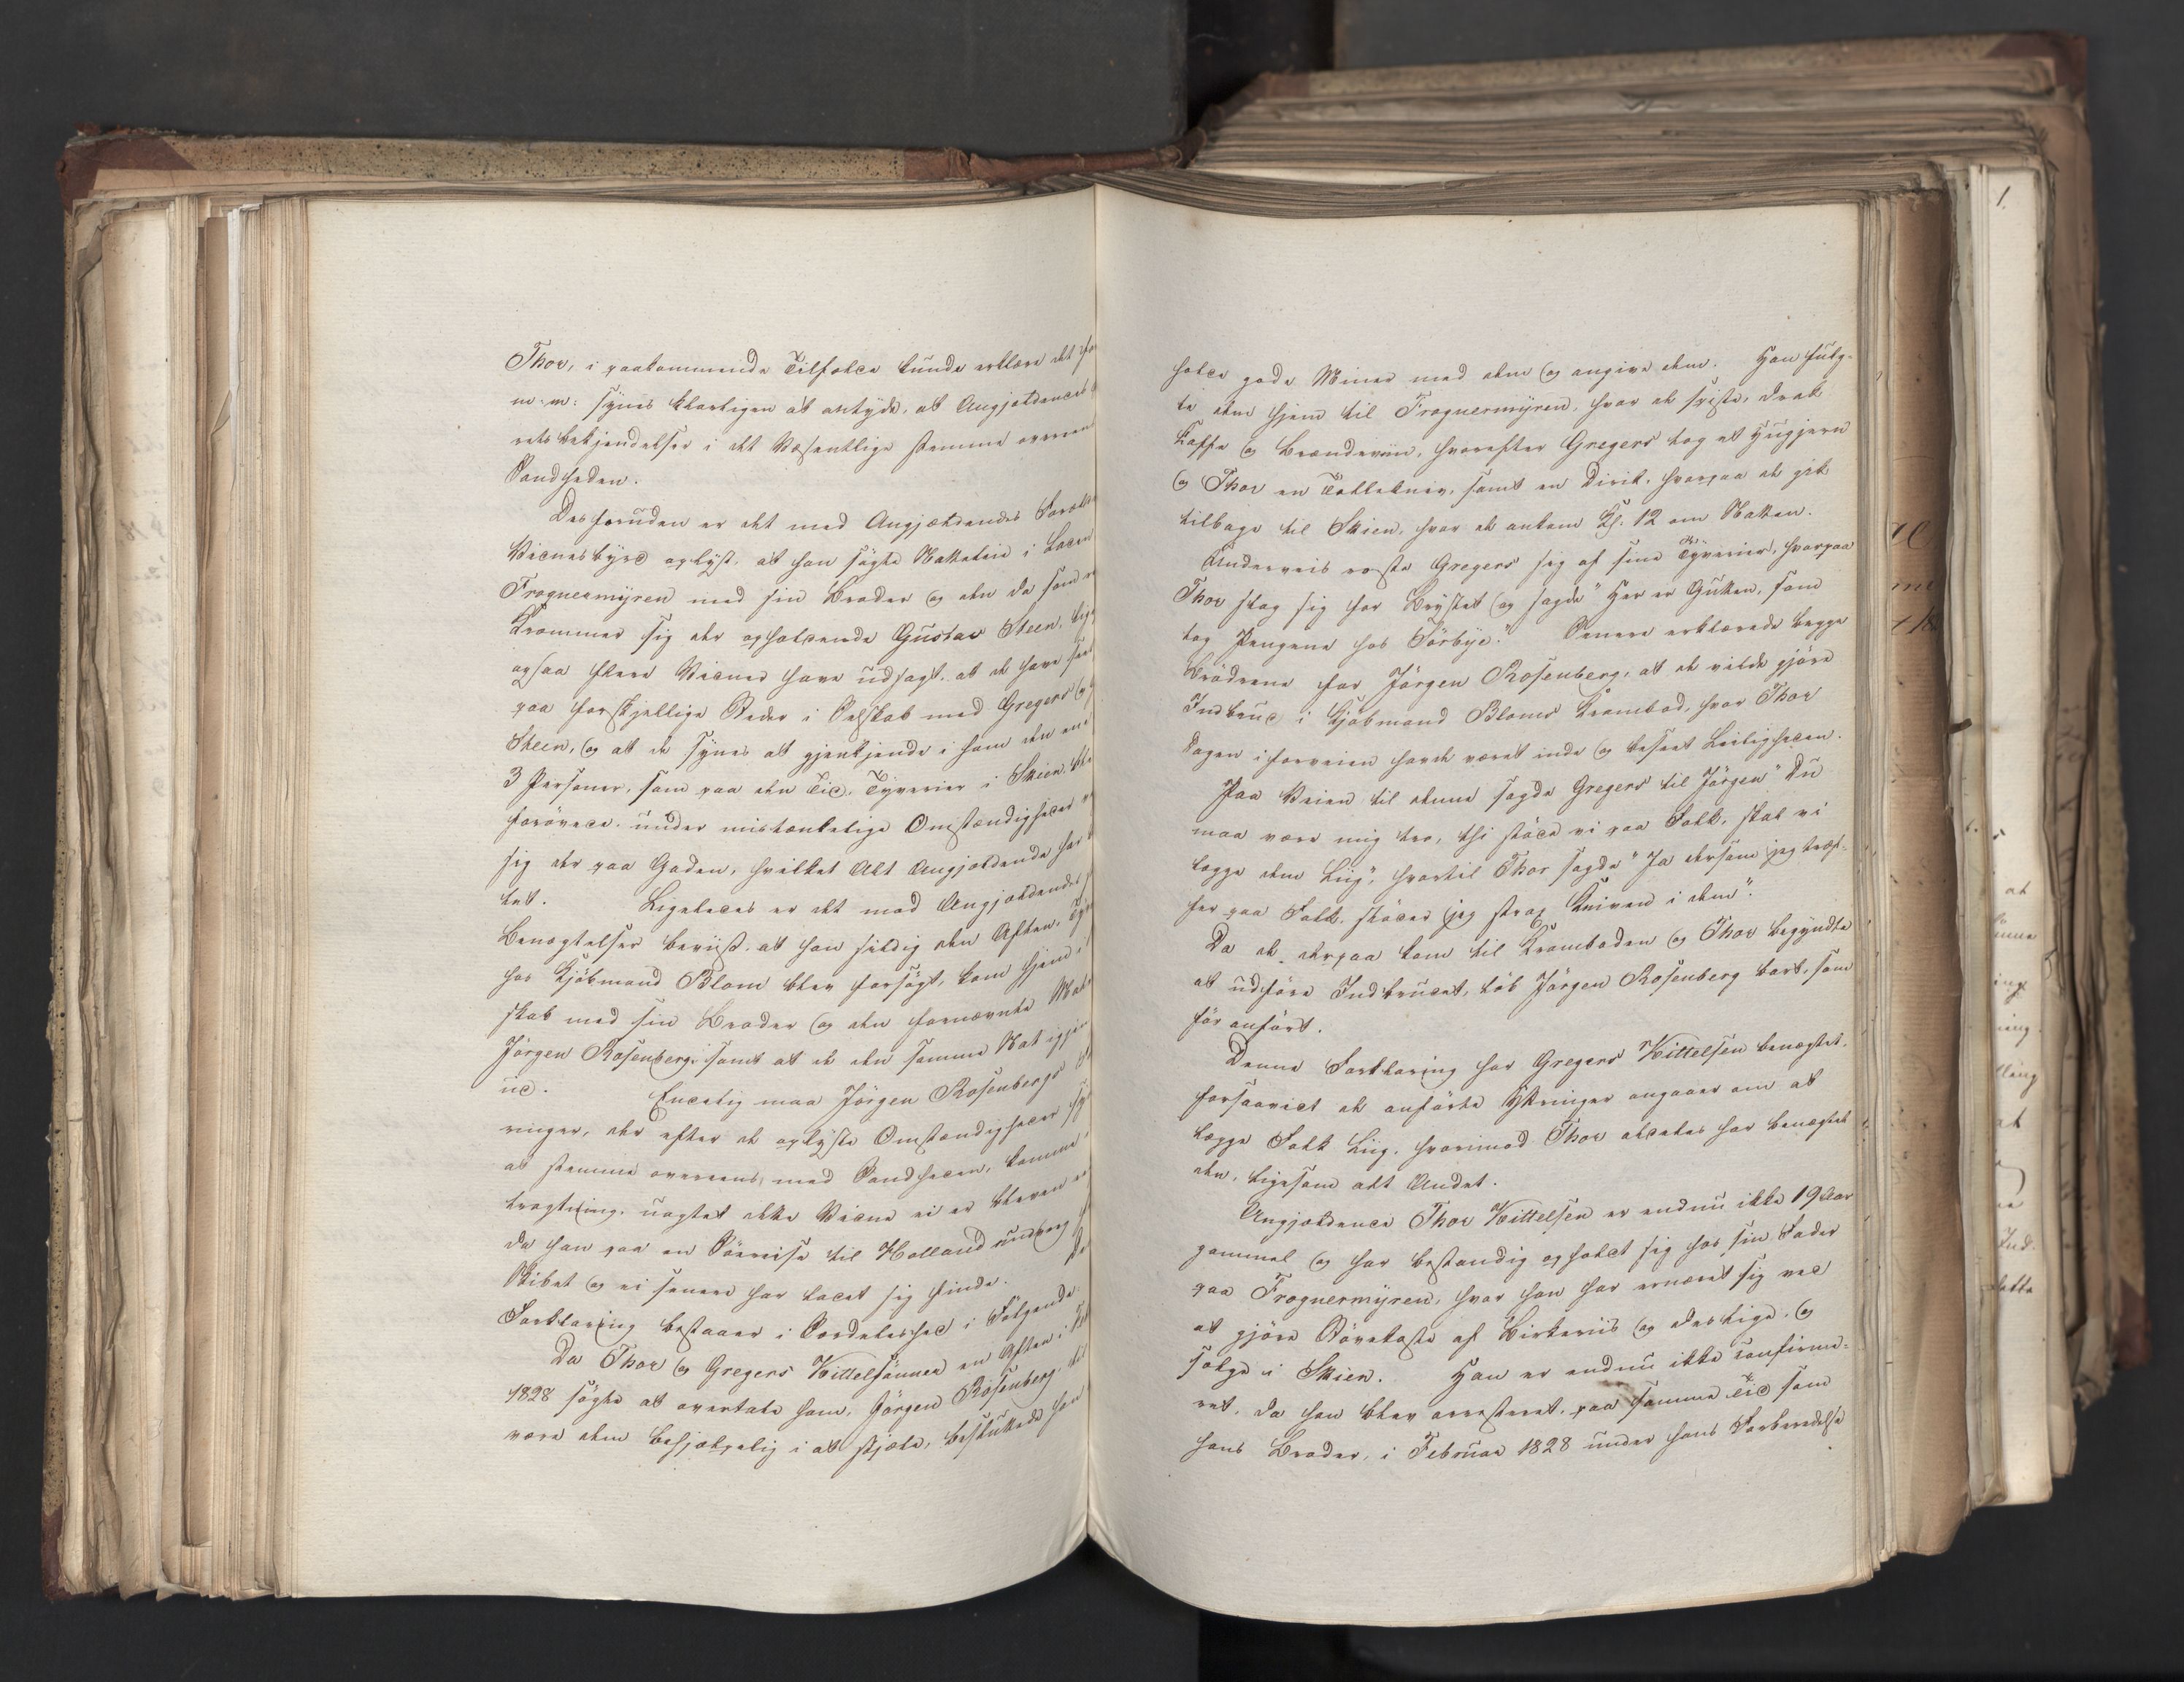 Thor, i paakommende Tilfælde kunde erklære det for
m: m: synes klarligen at antyde, at Angjældendes
retsbekjendelser i det Væsentlige stemme overeen
Sandheden.
Desforuden er det mod Angjældendes
Vidnesbyrd oplyst, at han søgte Natteleie i
Frognermyren med sin Broder og den da som
Krømmer sig der opholdende Gustav Steen, lige
ogsaa flere Vidner have udsagt, at de have seet
paa forskjellige Steder i Selskab med Gregers og
Steen, og at de synes at gjenkjende i ham den ene
3 Personer, som paa den Tid, Tyverier i Skien, ble
forøvede, under mistænkelige Omstændigheder
sig der paa Gaden, hvilket Alt Angjældende har
tet. Ligeledes er det mod Angjældendes
Benægtelser beviist, at han sildig den Aften, Tyve
hos Kjøbmand Blom blev forsøgt, kom hjem i
skab med sin Broder og den fornævnte
Jørgen Rosenberg, samt at de den samme Nat igjen
ud. Endelig maa Jørgen Rosenbergs
ringer, der efter de oplyste Omstændigheder
at stemme overeens med Sandheden, komme
tragtning, uagtet dette Vidne ei er bleven
da han paa en Søereise til Holland undveg
Skibet og ei senere har ladet sig finde.
Forklaring bestaaer i Særdeleshed i Følgende:
Da Thor og Gregers Kittelsønner en Aften i
1828 søgte at overtale ham, Jørgen Rosenberg, til
være dem behjælpelig i at stjæle, besluttede han
holde gode Miner med dem og angive dem. Han fulg-
te dem hjem til Frognermyren, hvor de spiste, drak
Kaffe og Brændeviin, hvorefter Gregers tog et Hugjern
og Thor en Tollekniv, samt en Dirik, hvorpaa de gik
tilbage til Skien, hvor de ankom Kl: 12 om Natten.
Underveis roste Gregers sig af sine Tyverier, hvorpaa
Thor slog sig for Brystet og sagde "Her er Gutten, som
tog Pengene hos Törbye." Senere erklærede begge
Brødrene for Jørgen Rosenberg, at de vilde gjøre
Indbrud i Kjøbmand Bloms Krambod, hvor Thor
Dagen iforveien havde været inde og beseet Leiligheden.
Paa Veien til denne sagde Gregers til Jørgen "Du
maa være mig tro, thi støde vi paa Folk, skal vi
lægge dem Liig", hvortil Thor sagde "Ja dersom jeg træf-
fer paa Folk, støder jeg strax Kniven i dem".
Da de derpaa kom til Kramboden og Thor begyndte
at udføre Indbrudet, løb Jørgen Rosenberg bort, som
før anført.
Denne Forklaring har Gregers Kittelsen benægtet,
forsaavidt de anførte Yttringer angaaer om at
lægge Folk Liig, hvorimod Thor aldeles har benægtet
den, ligesom alt Andet.
Angjældende Thor Kittelsen er endnu ikke 19 Aar
gammel og har bestandig opholdt sig hos sin Fader
paa Frognermyren, hvor han har ernæret sig ved
at gjøre Sövekoste af Birkeriis og deslige, og
sælge i Skien. Han er endnu ikke confirme-
ret, da han blev arresteret, paa samme Tid som
hans Broder, i Februar 1828 under hans Forberedelse